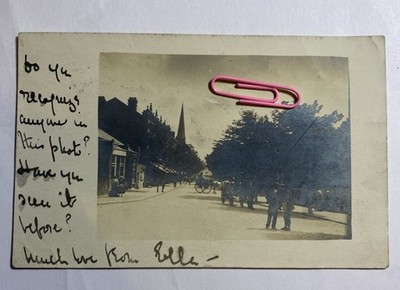 Do you
recognise
anyone in
this photo?
Have you
seen it
before?
Much love from Ella -